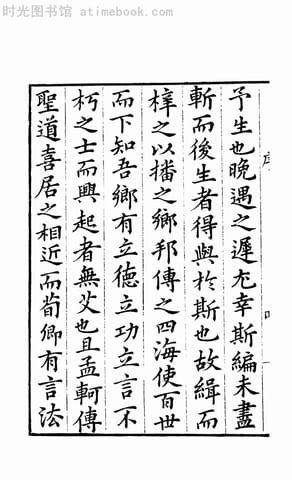 时光图书馆 atimebook.com
序
予生也晚遇之遲尤幸斯編未盡
斬而後生者得與於斯也故緝而
梓之以播之鄉邦傳之四海使百世
而下知吾鄉有立德立功立言不
朽之士而興起者無艾也且孟軻傳
聖道喜居之相近而荀卿有言法